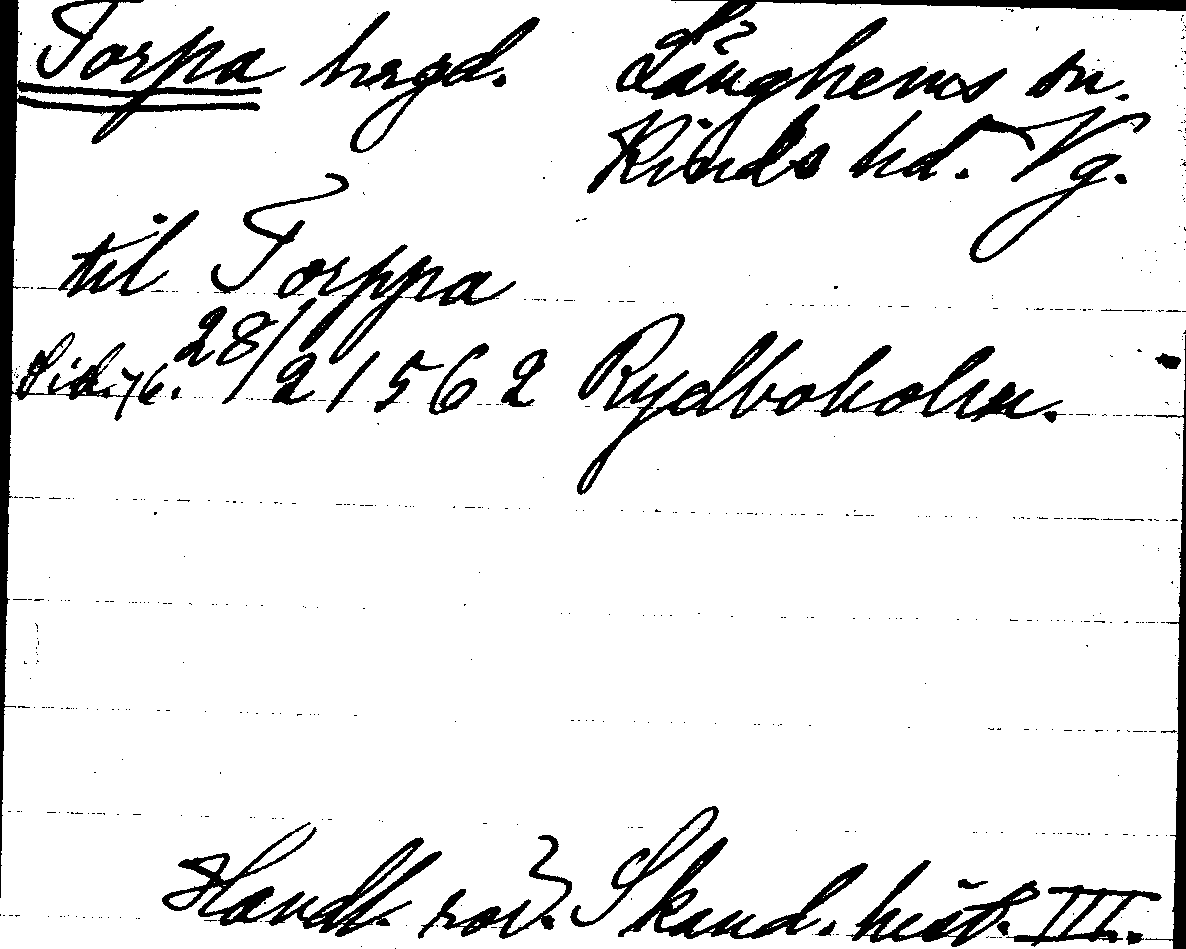 Torpa hrgd. Långhems sn.
Kinds hd. Vg.
til Torppa
Sid. 76. 28/2 1562 Rydboholm.
Handl. rör. Skand. hist. III.